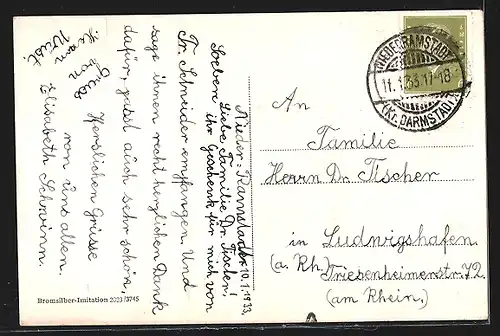 Nieder-Ramstadt, 10.1.1933,
Liebe Familie Dr. Tischer!
Soeben ihr Geschenk für mich von
Fr. Schneider empfangen. Und
sage ihnen recht herzlichen Dank
dafür, passt auch sehr schön.
Herzlichen Grüsse
von uns allen.
Elisabeth Schwinn.
Gruss
von
Wüst.
Bromsilber-Imitation 2023/3745
NIEDERRAMSTADT
11.1.33.17-18
(Kr. DARMSTADT)
An
Familie
Herrn Dr. Tischer
in Ludwigshafen
(a. Rh.) Friesenheimerstr. 72
(am Rhein.)